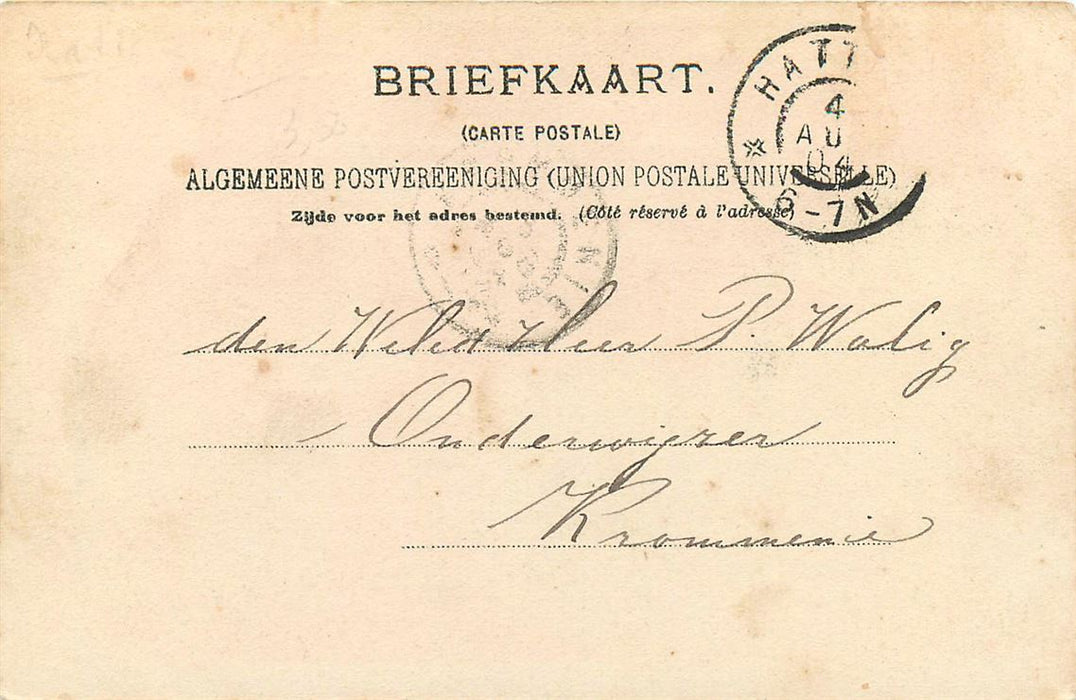 BRIEFKAART.
(CARTE POSTALE)
ALGEMEENE POSTVEREENIGING (UNION POSTALE UNIVERSELLE)
Zijde voor het adres bestemd. (Côté réservé à l'adresse)
HATT
4
AU
04
6-7N
den WelEd Heer P. Walig
Onderwijzer
Krommenie